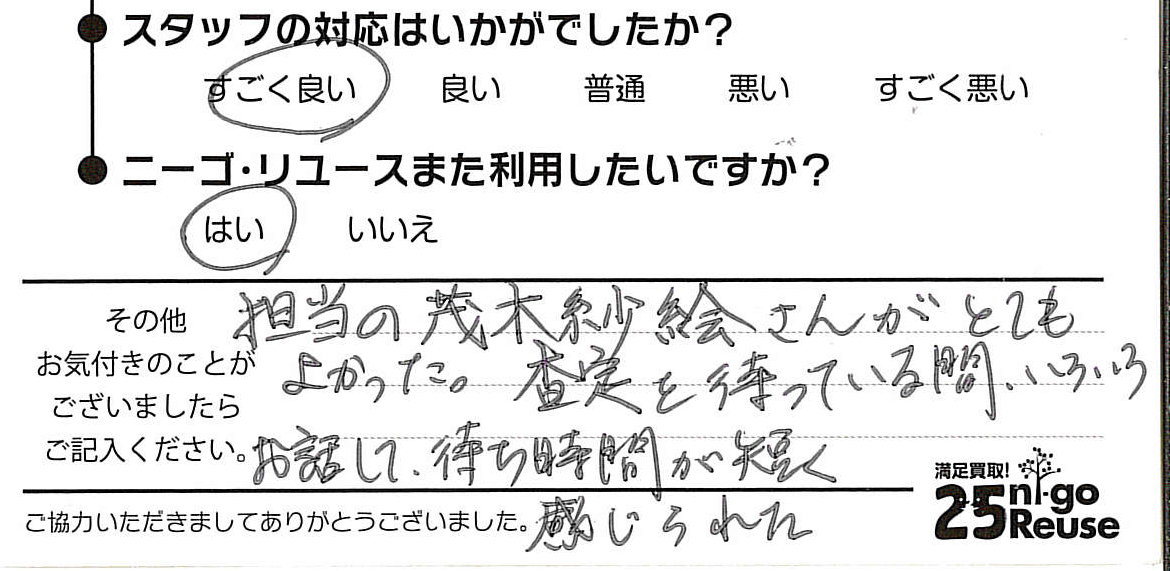 スタッフの対応はいかがでしたか？
すごく良い 良い 普通 悪い すごく悪い
ニーゴ・リユースまた利用したいですか？
はい いいえ
その他
お気付きのことが
ございましたら
ご記入ください。
担当の茂木紗絵さんがとても
よかった。査定を待っている間、いろいろ
お話して、待ち時間が短く
感じられた
満足買取!
25 ni-go
Reuse
ご協力いただきましてありがとうございました。